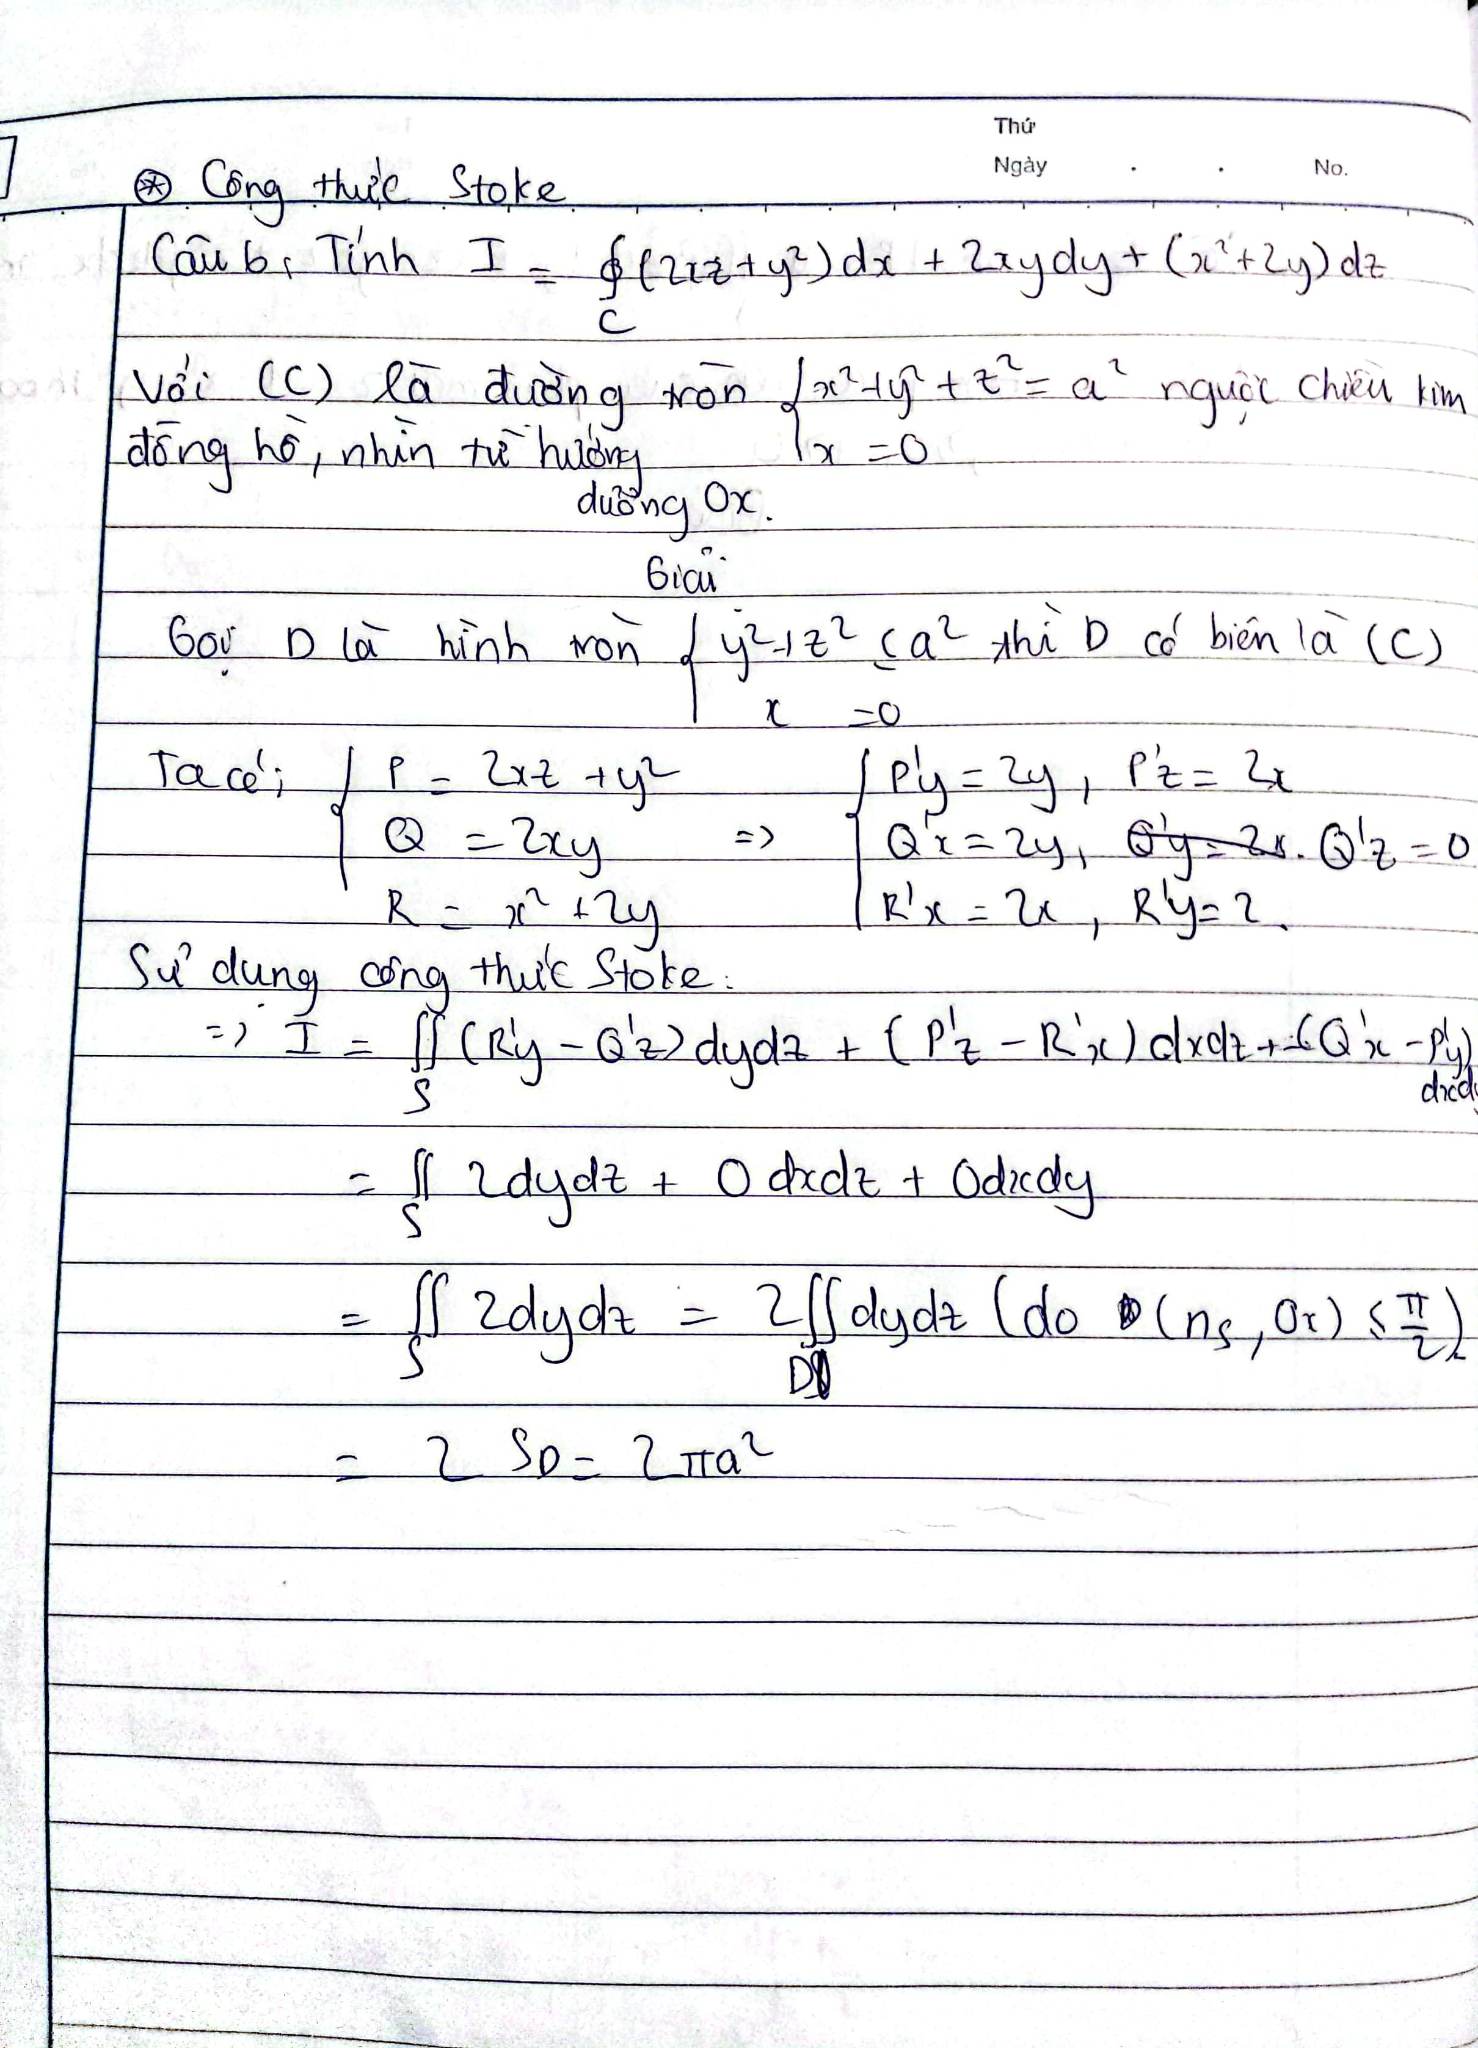 Thứ
Ngày . . No.
⊛ Công thức Stoke
Câu 6, Tính I = ∮ (2xz + y²) dx + 2xy dy + (x² + 2y) dz
C
Với (C) là đường tròn { x² + y² + z² = a² ngược chiều kim
đồng hồ, nhìn từ hướng x = 0
dương Ox.
Giải
Gọi D là hình tròn { y² + z² ≤ a² thì D có biên là (C)
x = 0
Ta có: { P = 2xz + y² { P'y = 2y, P'z = 2x
Q = 2xy => Q'x = 2y, Q'z = 0
R = x² + 2y R'x = 2x, R'y = 2.
Sử dụng công thức Stoke:
=> I = ∬ (R'y - Q'z) dydz + (P'z - R'x) dxdz + (Q'x - P'y)
S dxdy
= ∬ 2dydz + 0 dxdz + 0dxdy
S
= ∬ 2dydz = 2∬ dydz (do (nS, Ox) ≤ π/2)
S D
= 2 SD = 2πa²